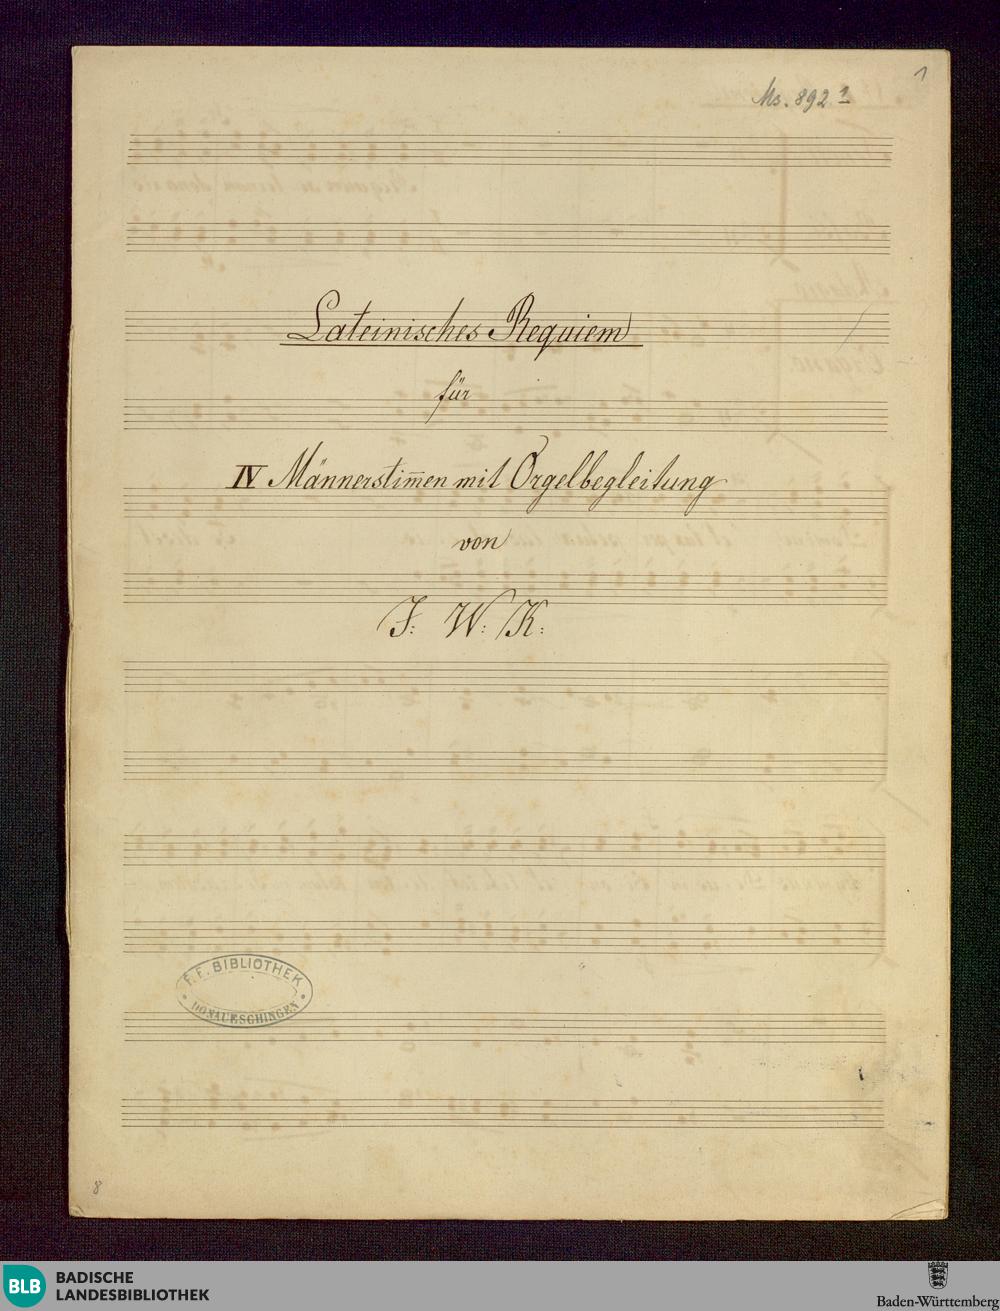 1
Ms. 892 1
Lateinisches Requiem
für
IV Männerstim̅en mit Orgelbegleitung
von
J: W: K:
F. F. BIBLIOTHEK
DONAUESCHINGEN
8
BLB BADISCHE
LANDESBIBLIOTHEK
Baden-Württemberg